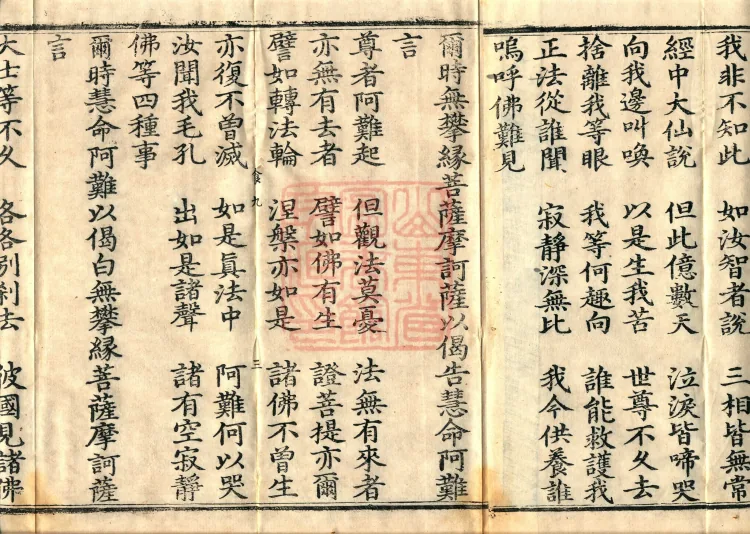 我非不知此 如汝智者說 三相皆無常
經中大仙說 但此億數天 泣淚皆啼哭
向我邊叫喚 以是生我苦 世尊不久去
捨離我等眼 我等何趣向 誰能救護我
正法從誰聞 寂靜深無比 我今供養誰
嗚呼佛難見
爾時無攀緣菩薩摩訶薩以偈告慧命阿難
言
尊者阿難起 但觀法莫憂 法無有來者
亦無有去者 譬如佛有生 證菩提亦爾
譬如轉法輪 涅槃亦如是 諸佛不曾生
食九 三
亦復不曾滅 如是眞法中 阿難何以哭
汝聞我毛孔 出如是諸聲 諸有空寂靜
佛等四種事
爾時慧命阿難以偈白無攀緣菩薩摩訶薩
言
大士等不久 各各別刹去 彼國見諸佛